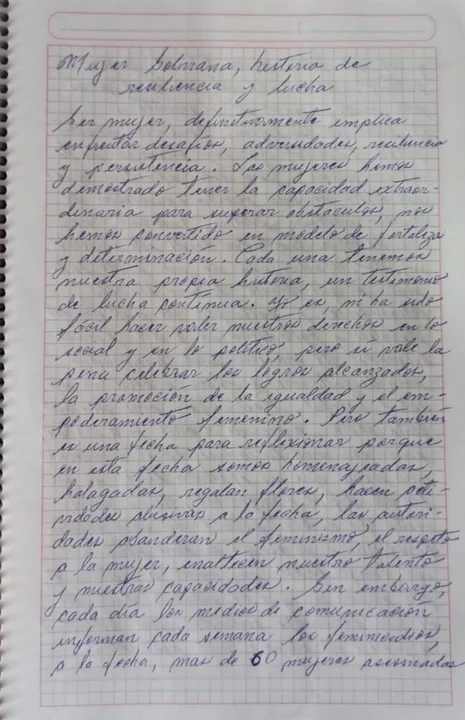 Mujer boliviana, historia de
resiliencia y lucha
Ser mujer, definitivamente implica
enfrentar desafios, adversidades, resiliencia
y persistencia. Las mujeres hemos
demostrado tener la capacidad extraor-
dinaria para superar obstaculos, nos
hemos convertido en modelo de fortaleza
y determinación. Cada una tenemos
nuestra propia historia, un testimonio
de lucha continua. No es, ni ha sido
fácil hacer valer nuestros derechos en lo
social y en lo político, pero si vale la
pena celebrar los logros alcanzados,
la promoción de la igualdad y el em-
poderamiento femenino. Pero también
es una fecha para reflexionar porque
en esta fecha somos homenajeadas,
halagadas, regalan flores, hacen acti-
vidades alusivas a la fecha, las autori-
dades abanderan el feminismo, el respeto
a la mujer, enaltecen nuestro talento
y nuestras capacidades. Sin embargo,
cada día los medios de comunicación
informan cada semana los feminicidios,
a la fecha, mas de 60 mujeres asesinadas